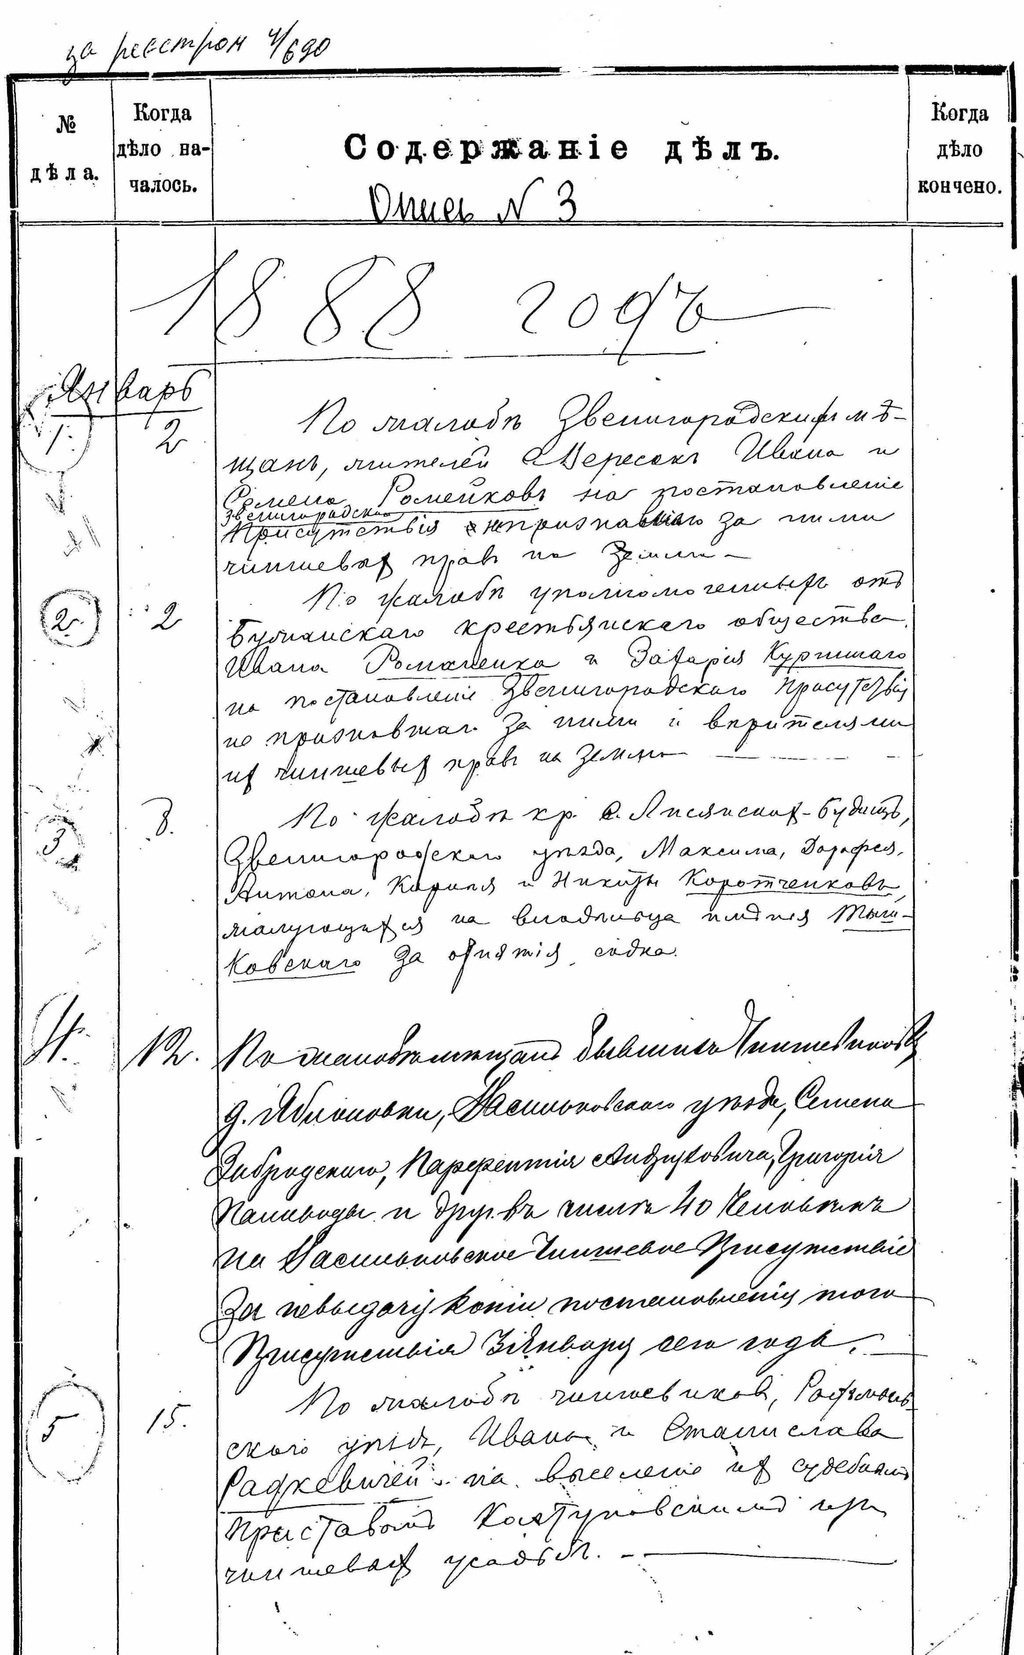 за реестром 4/690
№ дѣла.
Когда дѣло началось.
Содержаніе дѣлъ.
Когда дѣло кончено.
Опись N 3
1888 годъ
Январь
1. 2 По жалобѣ Звенигородских мѣ-
щанъ, жителей Ивана и
Ромейковъ на постановленіе
Звенигородскаго
Присутствія непризнавшаго за ними
чиншевых правъ на земли
2. 2 По жалобѣ уполномоченныхъ отъ
крестьянскаго общества
Ивана Романенка и Захарія
на постановленіе Звенигородскаго Присутствія
не признавшаг. за ними и вѣрителями
их чиншевых правъ на землю
3 8. По жалобѣ кр. с. Лисянских-Будищъ,
Звенигородскаго уѣзда, Максима, Дорофея,
Антона, Кирила и Никиты Коротченковъ,
жалующихся на владѣльца имѣнія
ковскаго за отнятія садка.
4. 12. По жалобѣ бывшихъ Чиншевиковъ
д. Яблоновки, Васильковскаго уѣзда, Семена
Забродскаго, Парфентія Григорія
Паливоды и друг. въ числѣ 40 Человѣкъ
на Васильковское Чиншевое Присутствіе
За невыдачу копіи постановленія того
Присутствія 3 Января сего года.
5 15. По жалобѣ чиншевиков,
скаго уѣзда, Ивана и Станислава
Радкевичей на выселеніе их судебнымъ
Приставомъ изъ
чиншевых усадьбъ.